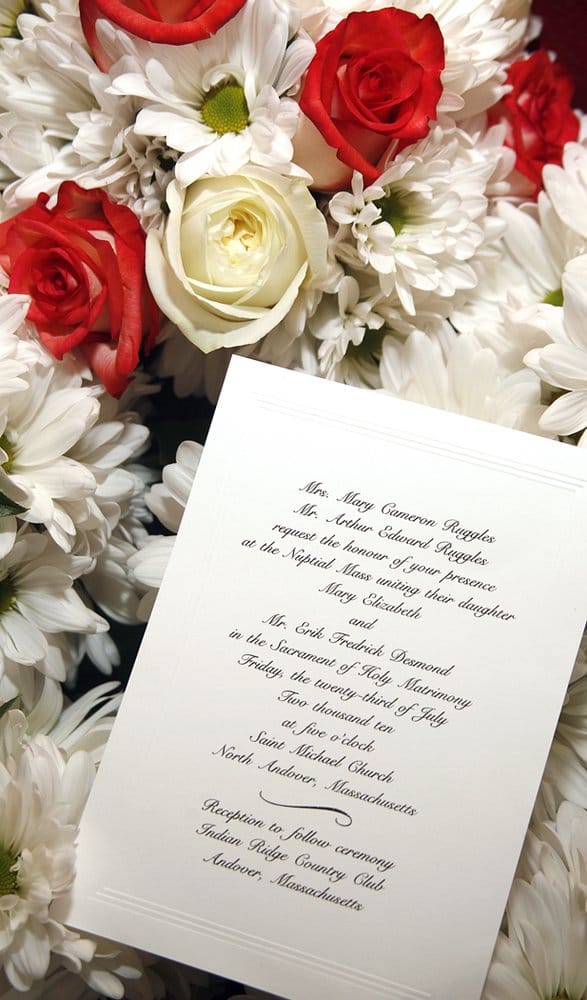 Mrs. Mary Cameron Ruggles
Mr. Arthur Edward Ruggles
request the honour of your presence
at the Nuptial Mass uniting their daughter
Mary Elizabeth
and
Mr. Erik Fredrick Desmond
in the Sacrament of Holy Matrimony
Friday, the twenty-third of July
Two thousand ten
at five o'clock
Saint Michael Church
North Andover, Massachusetts
Reception to follow ceremony
Indian Ridge Country Club
Andover, Massachusetts